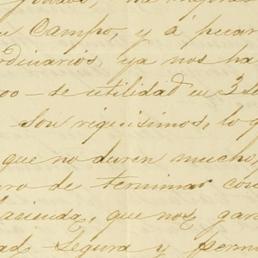 Campo, y á pesar
ordinarios, ya nos ha
00 - de utilidad en 2
son riquisimos, lo q
que no duren mucho,
ro de terminar con
hacienda, que nos gar
dad segura y perm